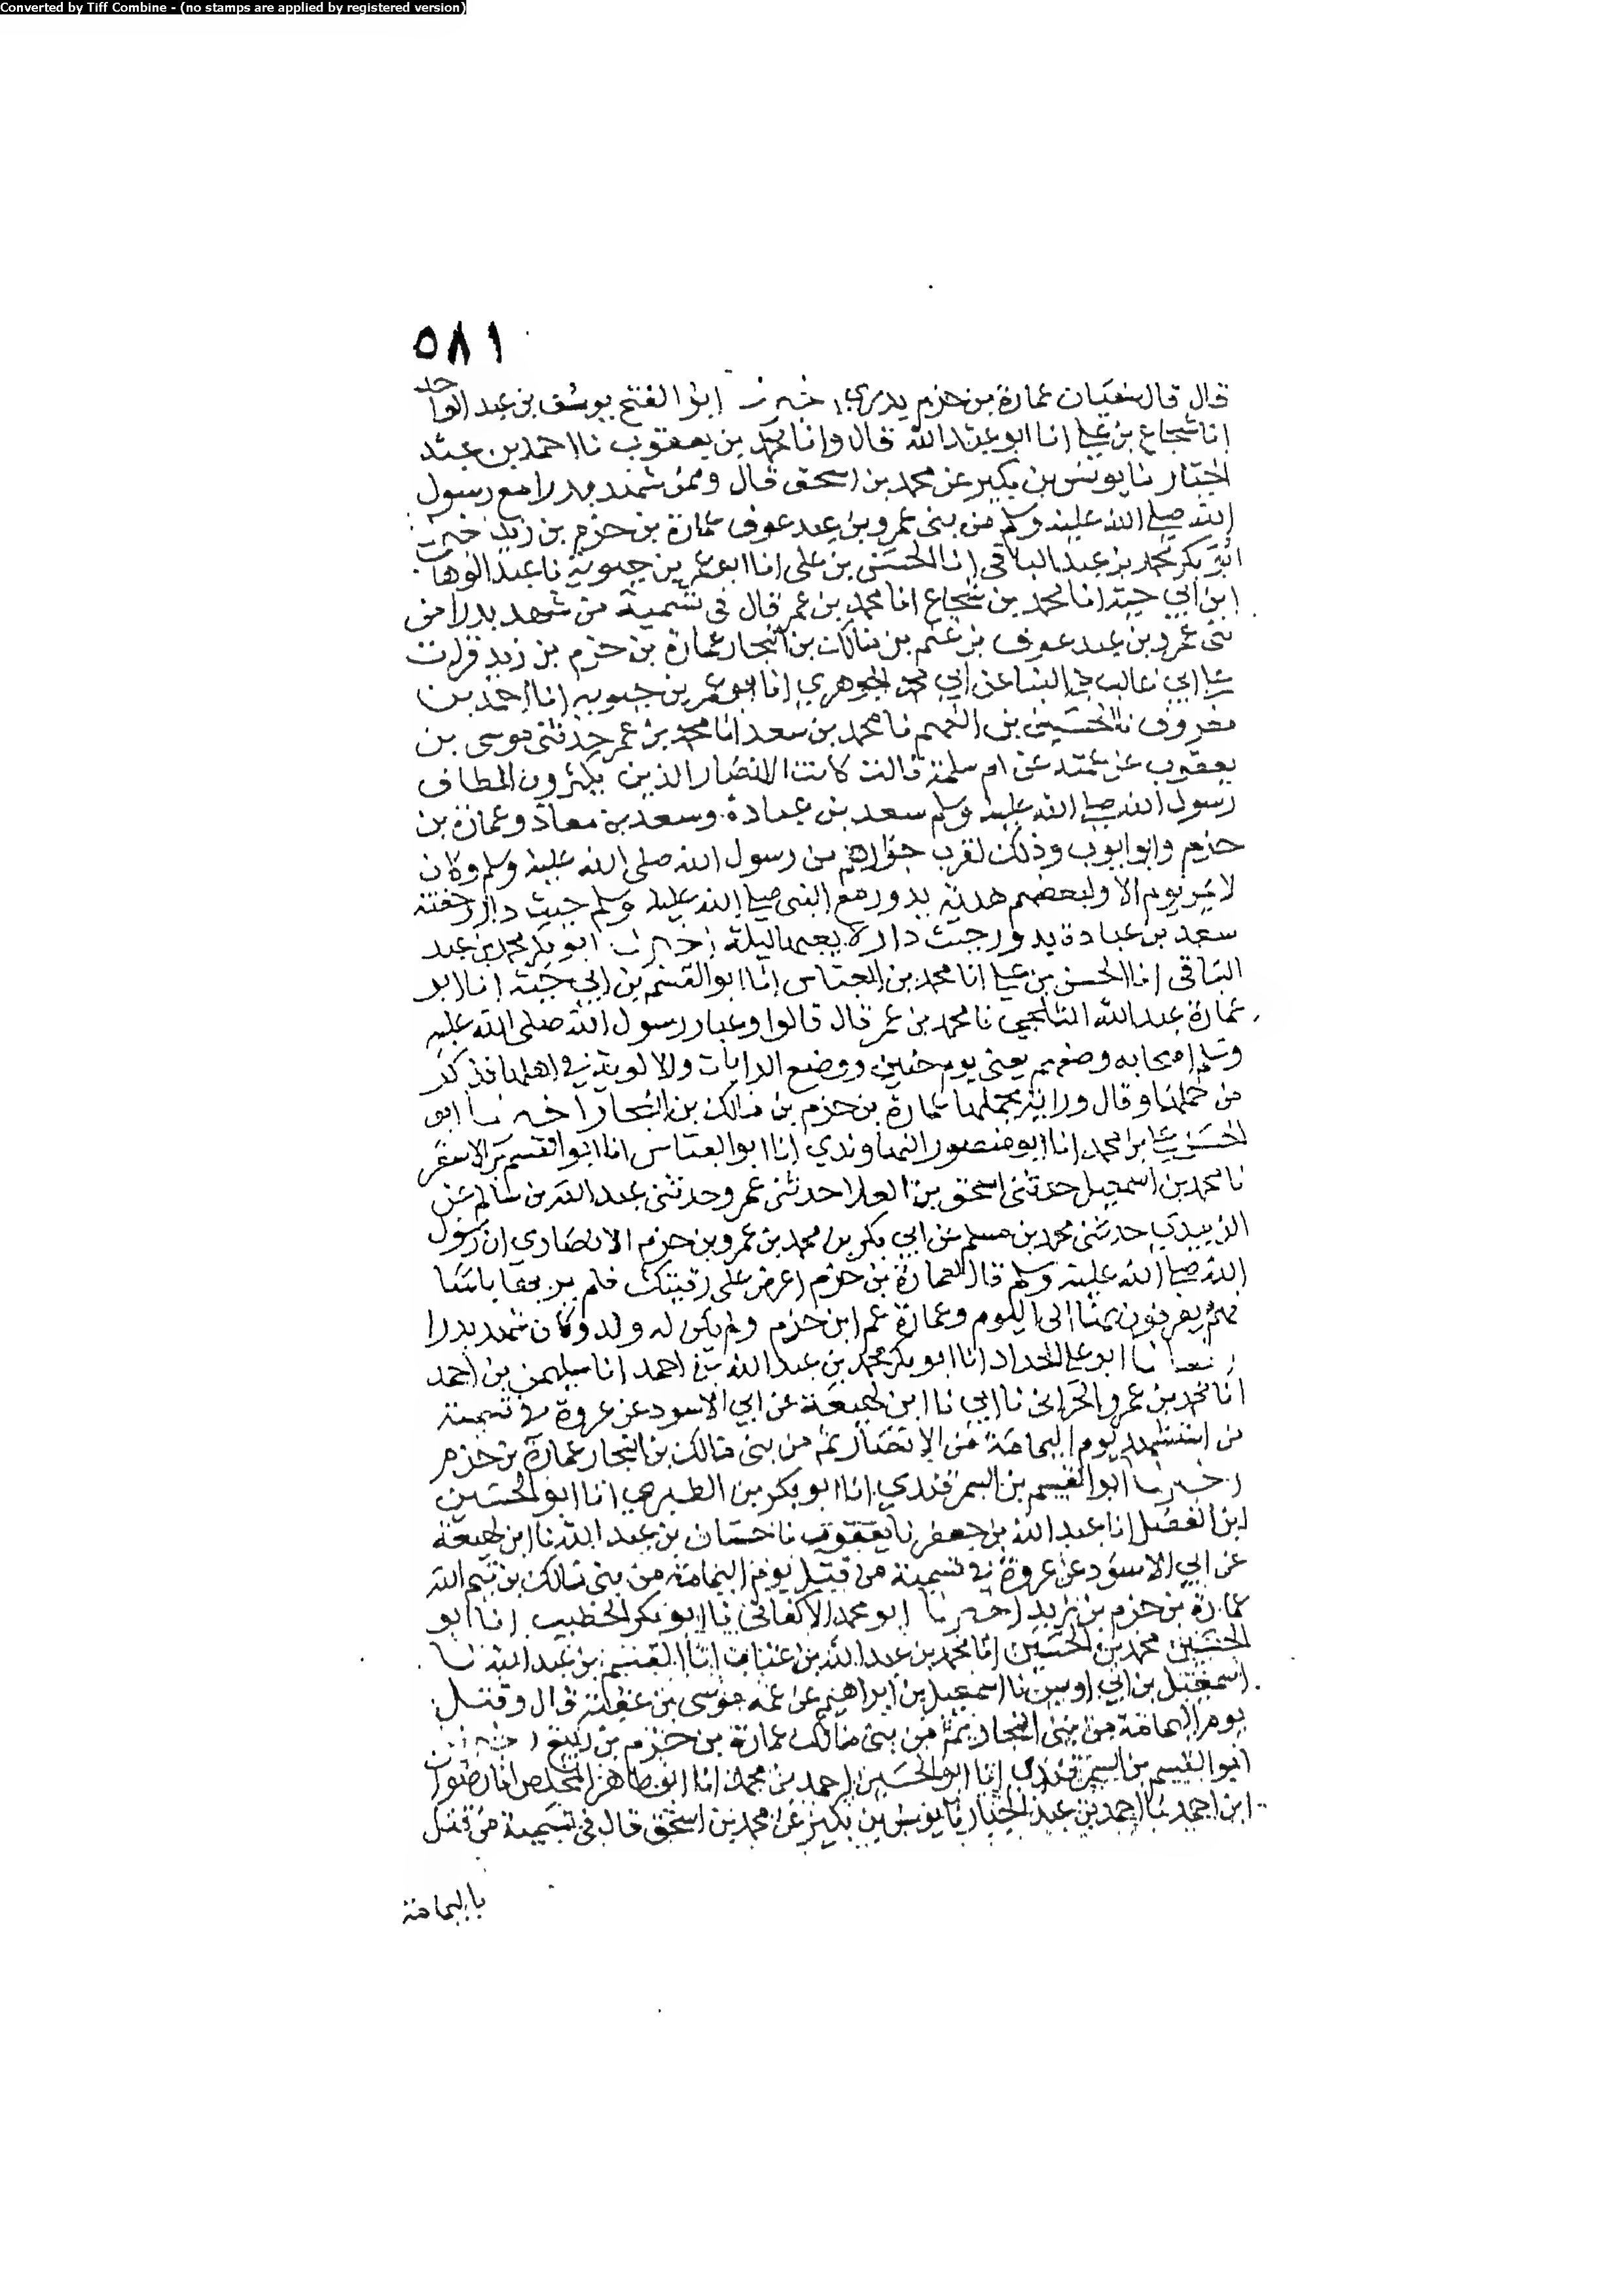 Converted by Tiff Combine - (no stamps are applied by registered version)
٥٨١
قال قال سفيان عمارة بن حزم بدري اخبرنا ابو الفتح يوسف بن عبد الواحد
انا شجاع بن علي انا ابو عبد الله قال وانا محمد بن يعقوب نا احمد بن عبد
الجبار نا يونس بن بكير عن محمد بن اسحق قال وممن شهد بدرا مع رسول
الله صلى الله عليه وسلم من بني عمرو بن عبد عوف عمارة بن حزم بن زيد اخبرنا
ابو بكر محمد بن عبد الباقي انا الحسن بن علي انا ابو عمر بن حيوية نا عبد الوهاب
ابن ابي حية انا محمد بن شجاع انا محمد بن عمر قال في تسمية من شهد بدرا من
بني عمرو بن عبد عوف بن غنم بن مالك بن النجار عمارة بن حزم بن زيد قرات
على ابي غالب بن البنا عن ابي محمد الجوهري انا ابو عمر بن حيويه انا احمد بن
معروف نا الحسين بن الفهم نا محمد بن سعد انا محمد بن عمر حدثني موسى بن
يعقوب عن عمته عن ام سلمة قالت كانت الانصار الذين يكثرون الطاف
رسول الله صلى الله عليه وسلم سعد بن عبادة وسعد بن معاذ وعمارة بن
حزم وابو ايوب وذلك لقرب جوارهم من رسول الله صلى الله عليه وسلم وكان
لا يمر يوم الا ولبعضهم هدية يدور مع النبي صلى الله عليه وسلم حيث دار وجفنة
سعد بن عبادة يدور حيث دار لا يغبها ليلة اخبرنا ابو بكر محمد بن عبد
الباقي انا الحسن بن علي انا محمد بن العباس انا ابو القسم بن ابي حية انا ابو
عبد الله الثلجي نا محمد بن عمر قال قالوا وعبا رسول الله صلى الله عليه
وسلم اصحابه وصفهم يعني يوم حنين ووضع الرايات والالوية في اهلها فذكر
من حملها وقال وراية يحملها عمارة بن حزم بن مالك بن النجار اخبرنا ابو
الحسن علي بن محمد انا ابو منصور النهاوندي انا ابو العباس انا ابو القسم بن الاشقر
نا محمد بن اسمعيل حدثني اسحق بن العلا حدثني عمرو حدثني عبد الله بن سالم عن
الزبيدي حدثني محمد بن مسلم عن ابي بكر بن محمد بن عمرو بن حزم الانصاري ان رسول
الله صلى الله عليه وسلم قال لعمارة بن حزم اعرض علي رقيتك فلم ير بها باسا
فهم يعرفون بها الى اليوم وعمارة عم ابن حزم ولم يكن له ولد وكان شهد بدرا
انبانا ابو علي الحداد انا ابو بكر محمد بن عبد الله بن احمد انا سليمن بن احمد
انا محمد بن عمرو الحراني نا ابي نا ابن لهيعة عن ابي الاسود عن عروة في تسمية
من استشهد يوم اليمامة من الانصار ثم من بني مالك بن النجار عمارة بن حزم
اخبرنا ابو القسم بن السمرقندي انا ابو بكر بن الطبري انا ابو الحسين
ابن الفضل انا عبد الله بن جعفر نا يعقوب نا حسان بن عبد الله نا ابن لهيعة
عن ابي الاسود عن عروة في تسمية من قتل يوم اليمامة من بني مالك بن تيم الله
عمارة بن حزم بن زيد اخبرنا ابو محمد الاكفاني نا ابو بكر الخطيب انا ابو
الحسين محمد بن الحسين انا محمد بن عبد الله بن عتاب انا القسم بن عبد الله نا
اسمعيل بن ابي اويس نا اسمعيل بن ابراهيم عن عمه موسى بن عقبة قال وقتل
يوم اليمامة من بني النجار ثم من بني مالك عمارة بن حزم بن اخبرنا
ابو القسم بن السمرقندي انا ابو الحسين احمد بن محمد انا ابو طاهر المخلص انا رضوان
ابن احمد نا احمد بن عبد الجبار نا يونس بن بكير عن محمد بن اسحق قال في تسمية من قتل
باليمامة